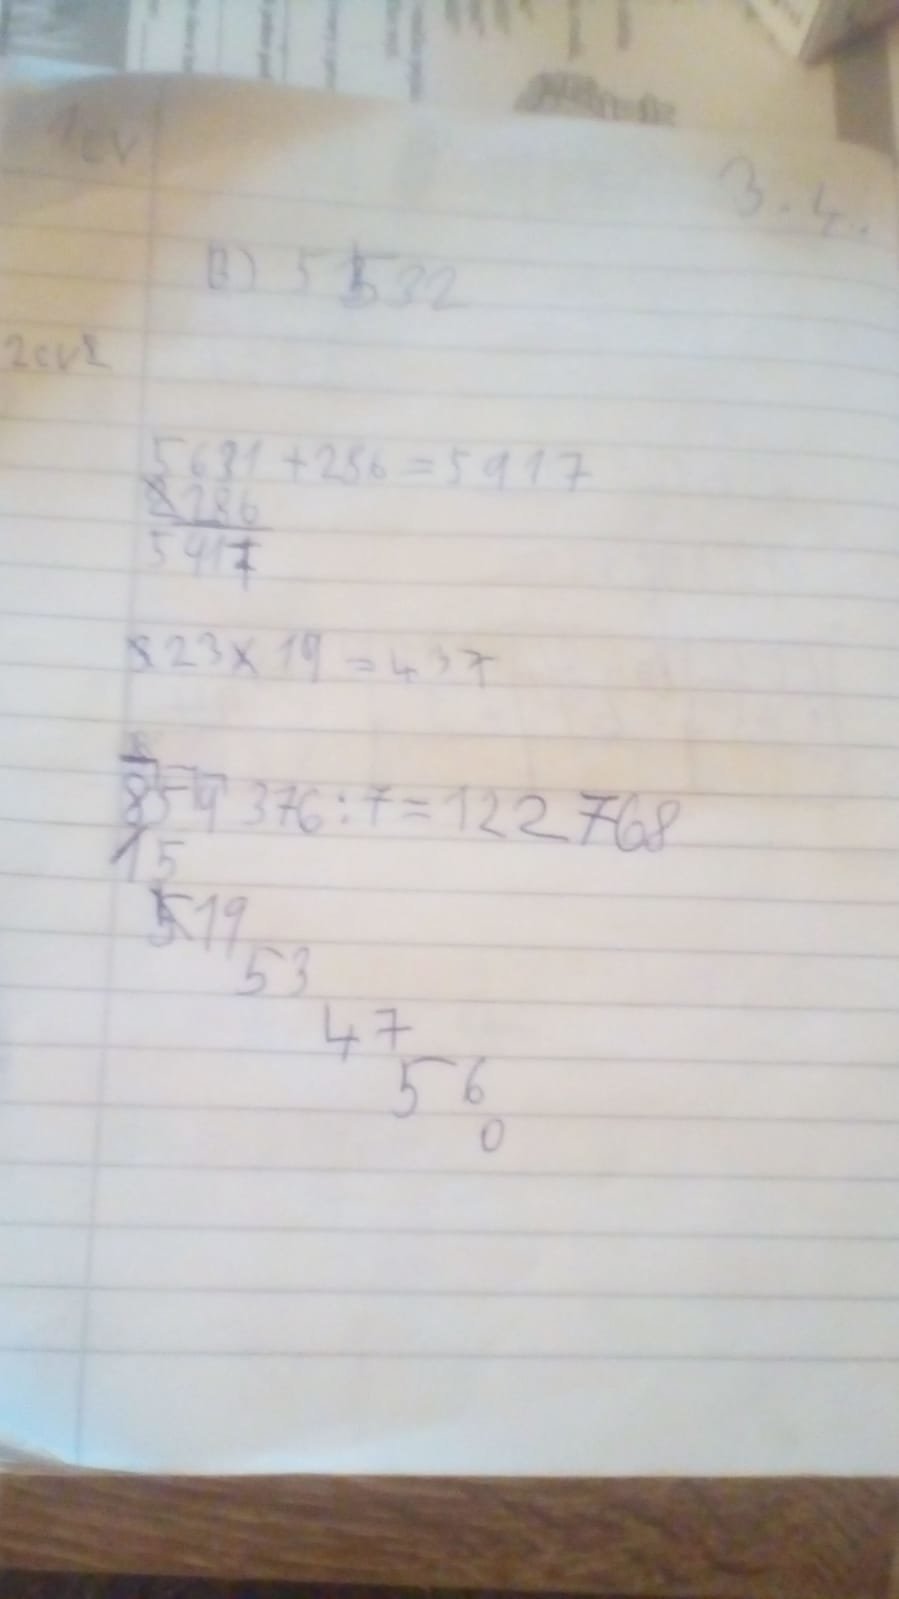 1cv
3.4.
B) 5 532
2cv
5631 + 286 = 5917
286
5917
23 x 19 = 437
859 376 : 7 = 122 768
15
19
53
47
56
0